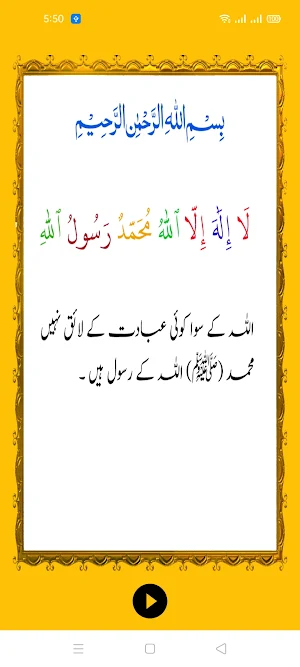 5:50
بِسْمِ اللهِ الرَّحْمٰنِ الرَّحِيْمِ
لَا إِلٰهَ إِلَّا ٱللهُ مُحَمّدٌ رَسُولُ ٱللهِ
اللہ کے سوا کوئی عبادت کے لائق نہیں
محمد (ﷺ) اللہ کے رسول ہیں۔